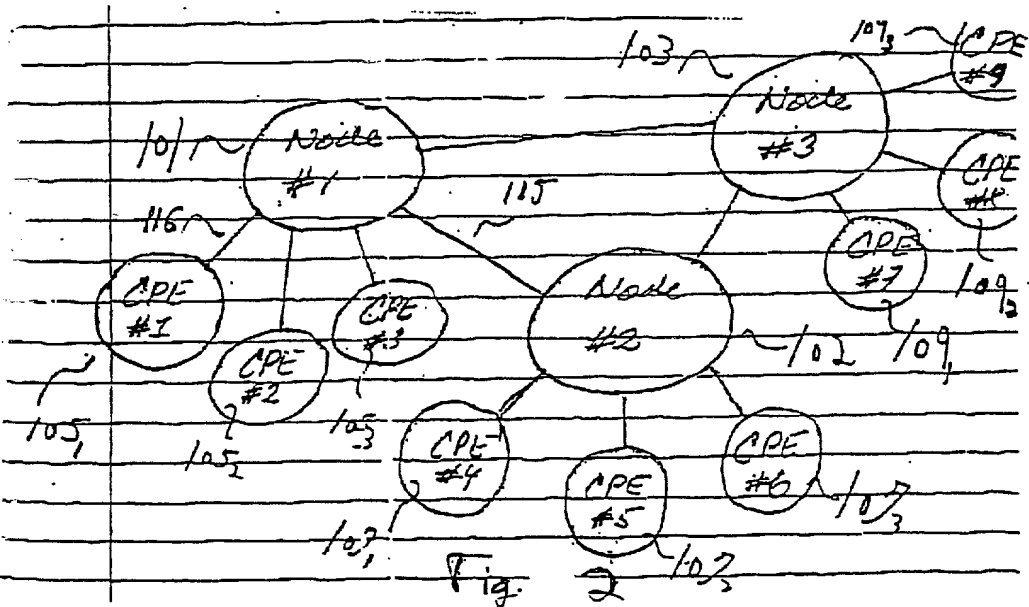 103
109₃
CPE
#9
Node
#1
Node
#3
101
CPE
#8
116
115
CPE
#7
109₂
CPE
#1
CPE
#3
Node
#2
102
109₁
CPE
#2
105₁
105₂
105₃
CPE
#4
CPE
#5
CPE
#6
107₁
107₂
107₃
Fig. 2